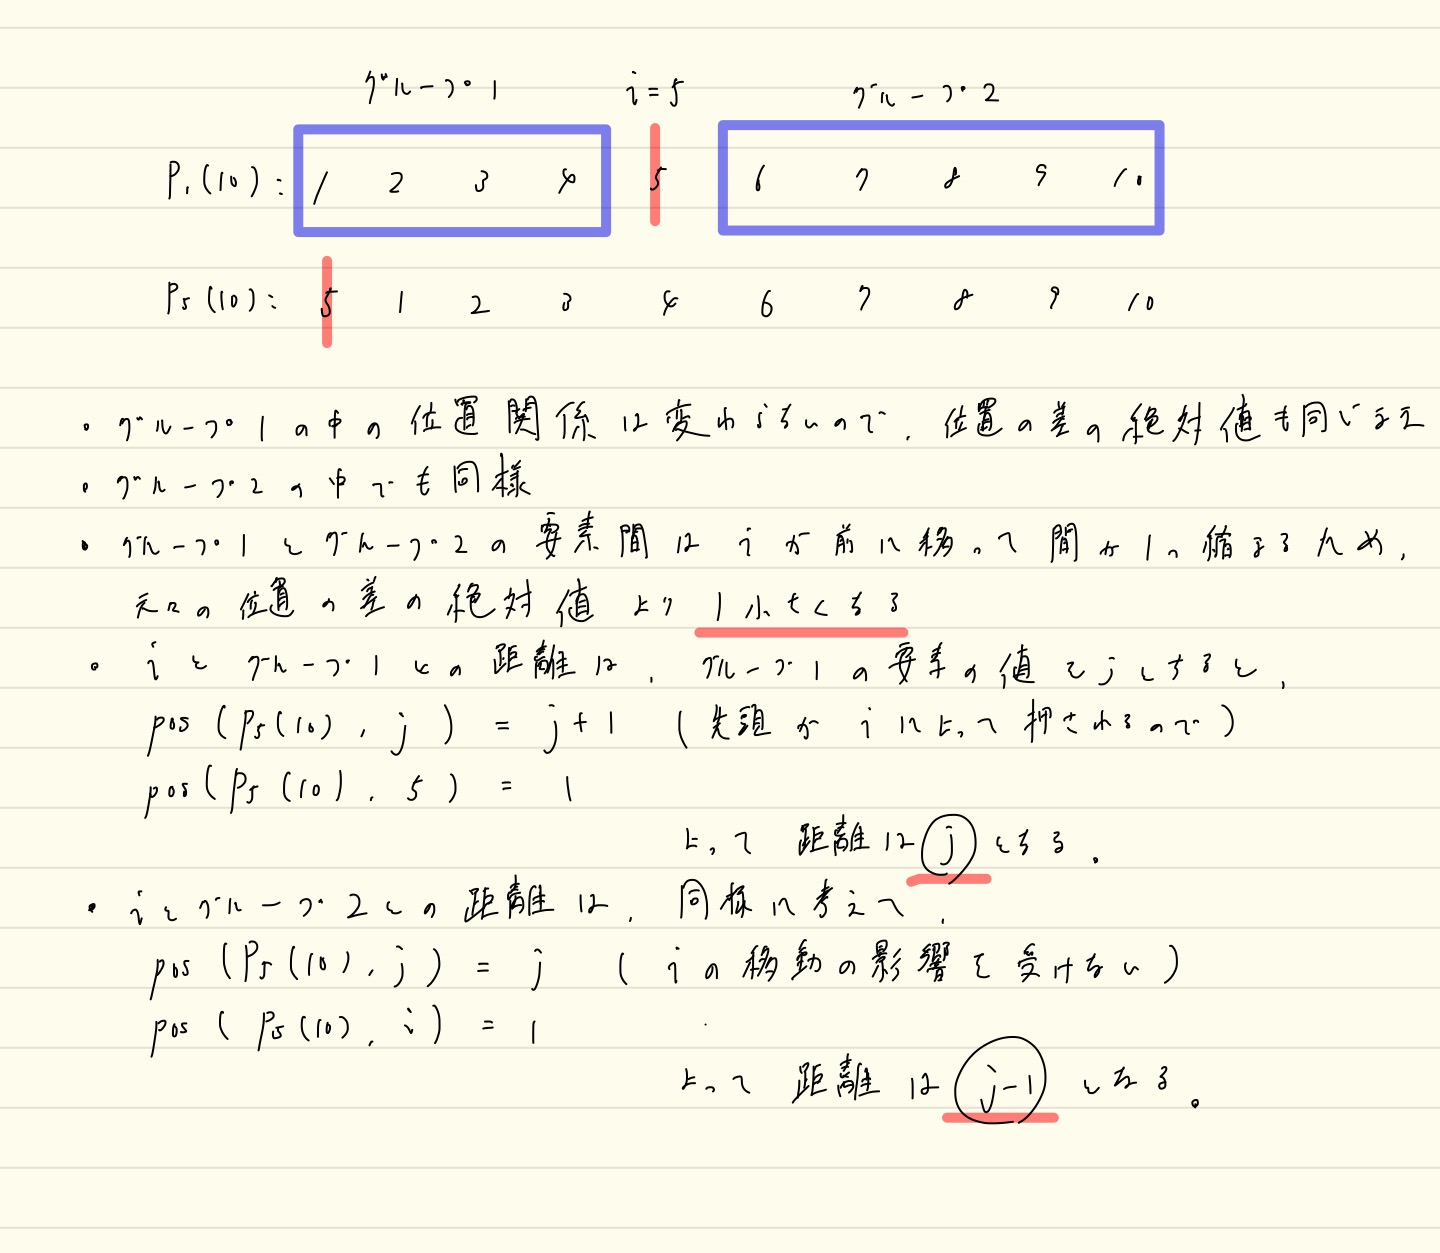 グループ1 i=5 グループ2
P₁(10): 1 2 3 4 5 6 7 8 9 10
P₅(10): 5 1 2 3 4 6 7 8 9 10
・グループ1の中の位置関係は変わらないので、位置の差の絶対値も同じまま
・グループ2の中でも同様
・グループ1とグループ2の要素間は iが前に移って間が1つ縮まるため、
元々の位置の差の絶対値より1小さくなる
・iとグループ1との距離は、グループ1の要素の値をjとすると、
pos(P₅(10), j) = j+1 (先頭がiによって押されるので)
pos(P₅(10), 5) = 1
よって距離は j となる。
・iとグループ2との距離は、同様に考えて、
pos(P₅(10), j) = j (iの移動の影響を受けない)
pos(P₅(10), i) = 1
よって距離は j-1 となる。